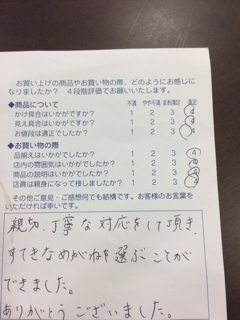 お買い上げの商品やお買い物の際、どのようにお感じに
なりましたか？ 4段階評価でお願いいたします。
◆商品について 不満 やや不満 まあ満足 満足
かけ具合はいかがですか？ 1 2 3 4
見え具合はいかがですか？ 1 2 3 4
お値段は適正でしたか？ 1 2 3 4
◆お買い物の際
品揃えはいかがでしたか？ 1 2 3 4
店内の雰囲気はいかがでしたか？ 1 2 3 4
商品の説明はいかがでしたか？ 1 2 3 4
店員は親身になって接しましたか？ 1 2 3 4
その他ご意見・ご感想何でも結構です。お客様のお言葉を
いただければ幸いです。
親切、丁寧な対応をして頂き、
すてきなめがねを選ぶことが
できました。
ありがとうございました。